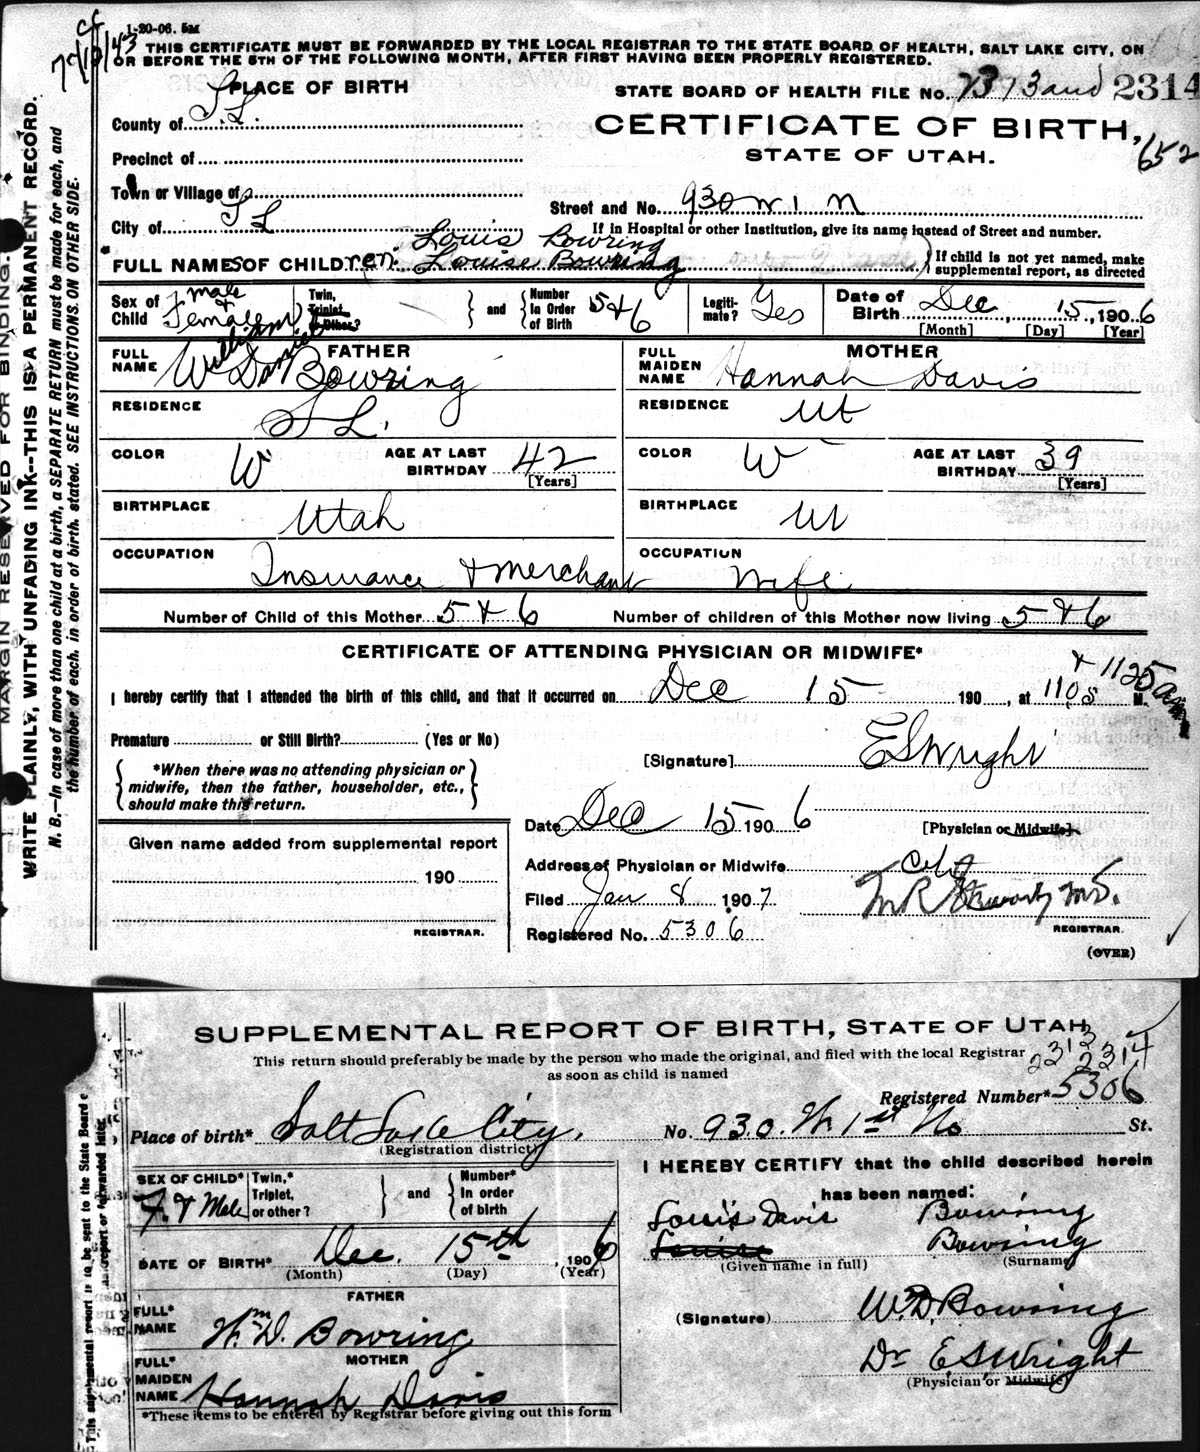 1-20-06. 5M
THIS CERTIFICATE MUST BE FORWARDED BY THE LOCAL REGISTRAR TO THE STATE BOARD OF HEALTH, SALT LAKE CITY, ON
OR BEFORE THE 5TH OF THE FOLLOWING MONTH, AFTER FIRST HAVING BEEN PROPERLY REGISTERED.
PLACE OF BIRTH
STATE BOARD OF HEALTH FILE No. 2313 and 2314
County of S.L.
CERTIFICATE OF BIRTH,
652
STATE OF UTAH.
Precinct of
Town or Village of
Street and No. 930 W 1 N
City of S L
If in Hospital or other Institution, give its name instead of Street and number.
Louis Bowring
FULL NAMES OF CHILDren. Louise Bowring
If child is not yet named, make
supplemental report, as directed
Sex of Child Male & Female
Twin, Triplet, or Other?
and
Number In Order of Birth 5 & 6
Legiti-mate? Yes
Date of Birth Dec 15, 1906
[Month] [Day] [Year]
FATHER
FULL NAME William Daniel Bowring
RESIDENCE S L.
COLOR W
AGE AT LAST BIRTHDAY 42
[Years]
BIRTHPLACE Utah
OCCUPATION Insurance & Merchant
MOTHER
FULL MAIDEN NAME Hannah Davis
RESIDENCE Ut
COLOR W
AGE AT LAST BIRTHDAY 39
[Years]
BIRTHPLACE Ut
OCCUPATION Wife
Number of Child of this Mother 5 & 6
Number of children of this Mother now living 5 & 6
CERTIFICATE OF ATTENDING PHYSICIAN OR MIDWIFE*
I hereby certify that I attended the birth of this child, and that it occurred on Dec 15 190 , at 1105 & 1125 am M.
Premature or Still Birth? (Yes or No)
[Signature] E S Wright
*When there was no attending physician or
midwife, then the father, householder, etc.,
should make this return.
Date Dec 15 1906
[Physician or Midwife]
Given name added from supplemental report
190
REGISTRAR.
Address of Physician or Midwife City
Filed Jan 8 1907
REGISTRAR.
Registered No. 5306
(OVER)
MARGIN RESERVED FOR BINDING.
WRITE PLAINLY, WITH UNFADING INK--THIS IS A PERMANENT RECORD.
N. B.—In case of more than one child at a birth, a SEPARATE RETURN must be made for each, and
the number of each, in order of birth, stated. SEE INSTRUCTIONS ON OTHER SIDE.
SUPPLEMENTAL REPORT OF BIRTH, STATE OF UTAH
This return should preferably be made by the person who made the original, and filed with the local Registrar
as soon as child is named
2313 2314
Registered Number* 5306
Place of birth* Salt Lake City,
(Registration district)
No. 930. W. 1st No St.
SEX OF CHILD* F. & Male
Twin,* Triplet, or other?
and
Number* In order of birth
DATE OF BIRTH* Dec. 15th, 1906
(Month) (Day) (Year)
FATHER
FULL* NAME Wm D. Bowring
MOTHER
FULL* MAIDEN NAME Hannah Davis
*These items to be entered by Registrar before giving out this form
I HEREBY CERTIFY that the child described herein
has been named:
Louis Davis Bowring
Louise Bowring
(Given name in full) (Surname)
(Signature) W.D. Bowring
Dr E S Wright
(Physician or Midwife)
This supplemental report is to be sent to the State Board